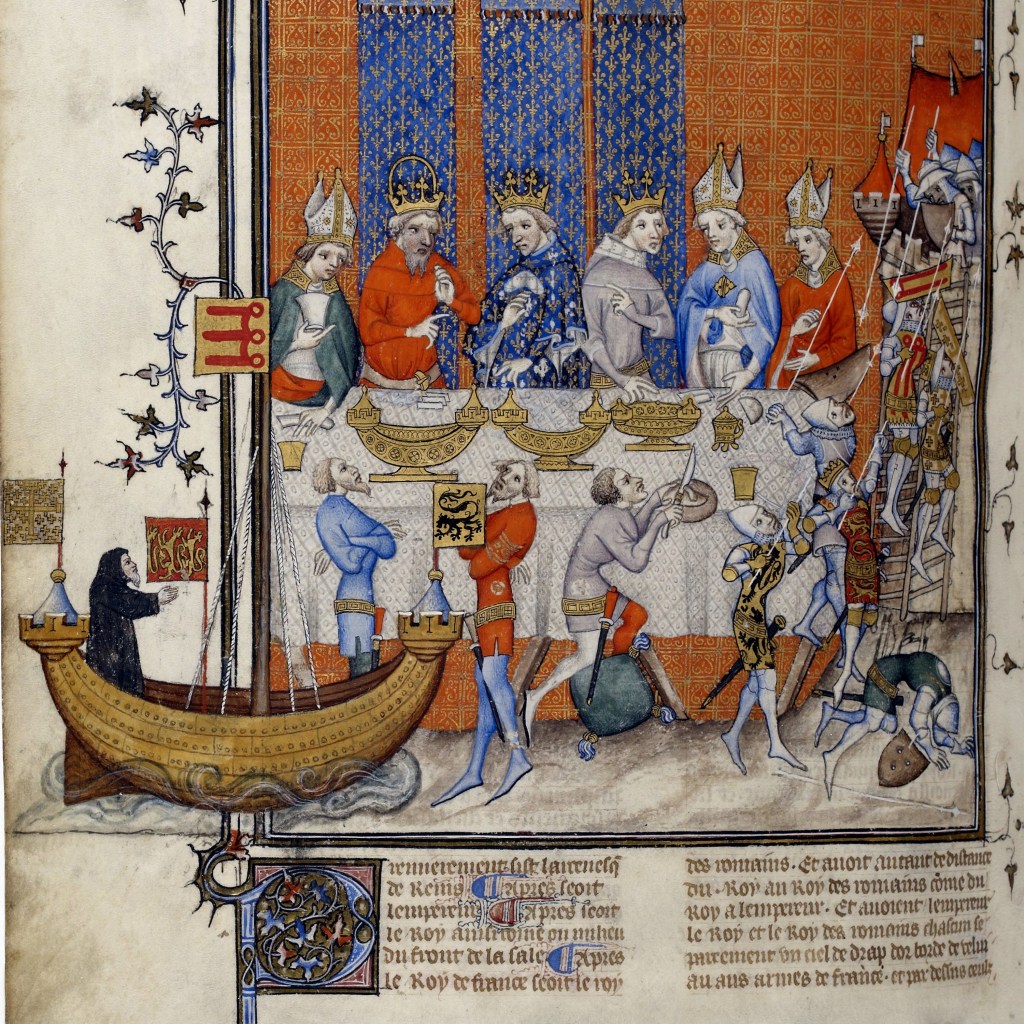 remierement sist larcevesq
de Reins Apres seoit
lempereur Apres seoit
le Roy
du front de la sale Apres
le Roy de france seoit le roy
des romains. Et avoit autant de distance
du . Roy au Roy des romains côme du
Roy a lempereur. Et avoient lempereur
le Roy et le Roy des romains chascun se
parement un ciel de drap dor borde de velui
au aus armes de france . et par dessus